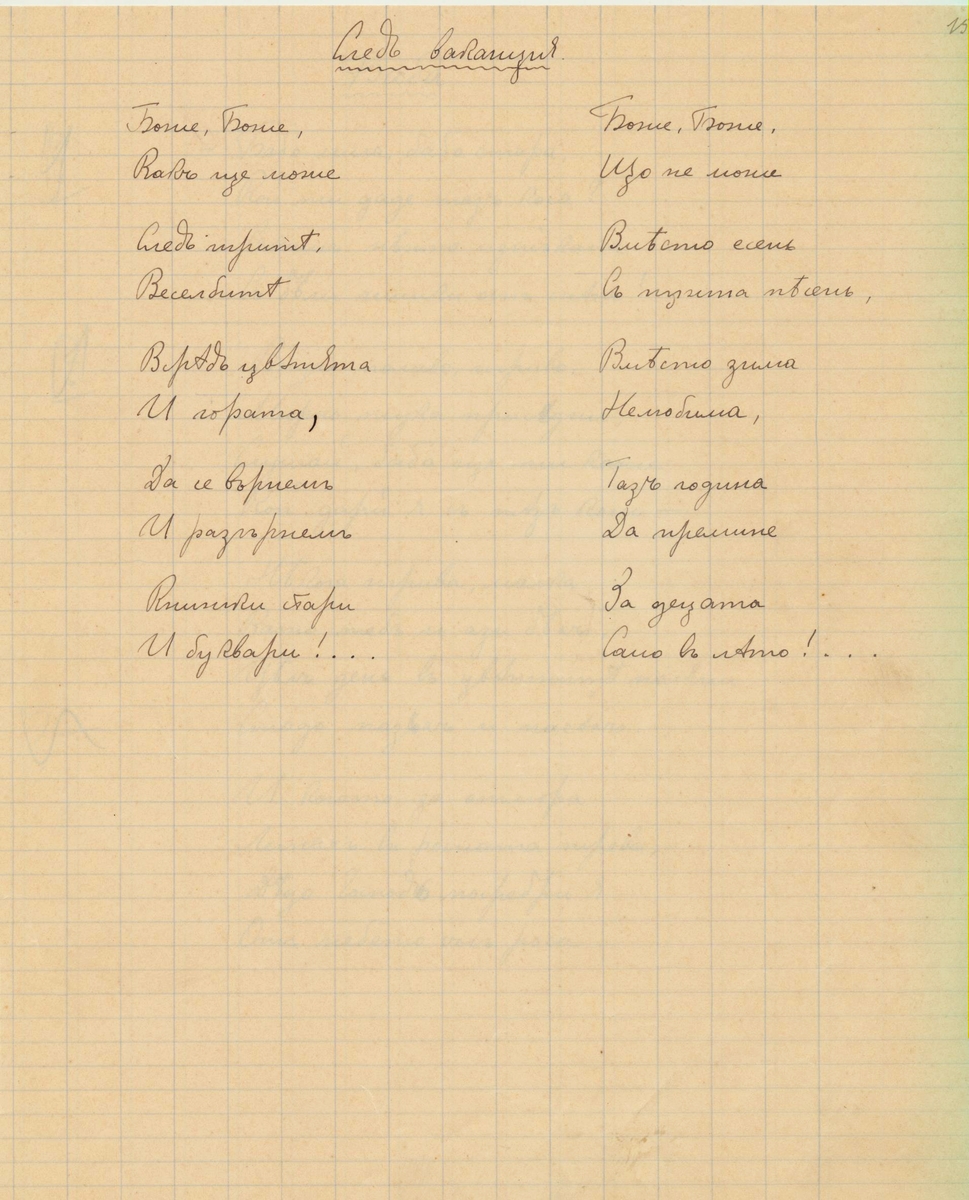 15
Следъ ваканция.
Боже, Боже,
Какъ ще може
Следъ игритѣ,
Веселбитѣ
Врѣдъ цвѣтята
И гората,
Да се върнемъ
И разгърнемъ
Книжки стари
И буквари!...
Боже, Боже,
Що не може
Вмѣсто есень
Съ пуста пѣсень,
Вмѣсто зима
Нелюбима,
Тазъ година
Да премине
За децата
Само въ лѣто!...